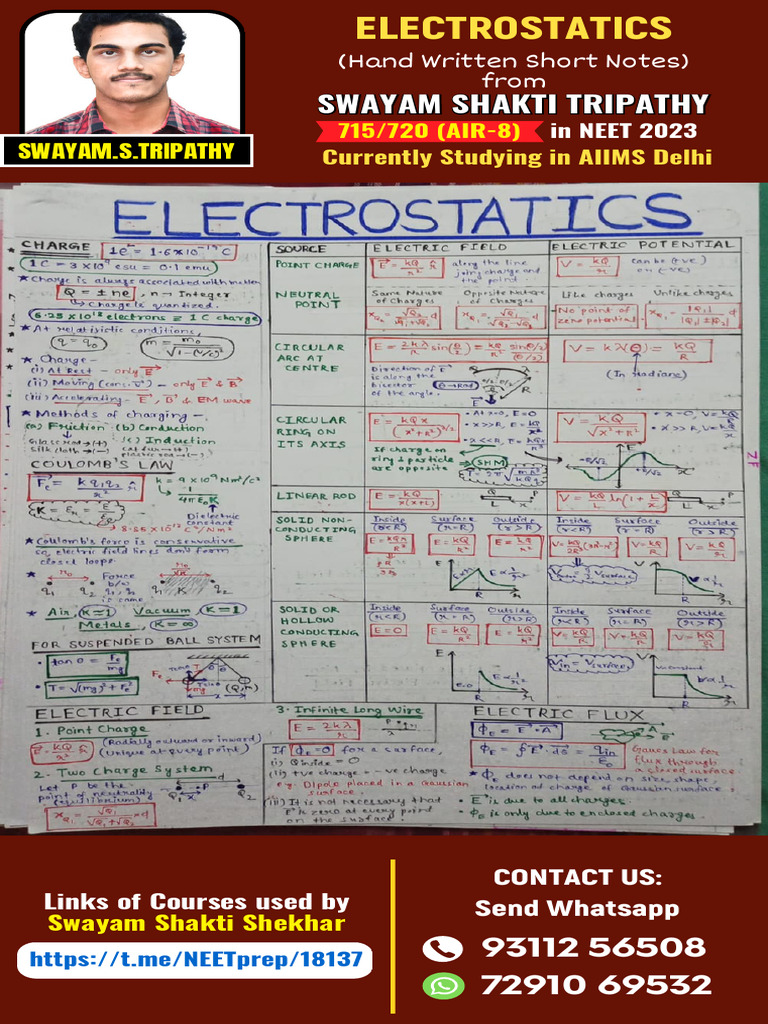 ELECTROSTATICS
(Hand Written Short Notes)
from
SWAYAM SHAKTI TRIPATHY
715/720 (AIR-8) in NEET 2023
Currently Studying in AIIMS Delhi
SWAYAM.S.TRIPATHY
ELECTROSTATICS
CHARGE 1e⁻ = 1.6×10⁻¹⁹C
1C = 3×10⁹ esu = 0.1 emu
★ Charge is always associated with
Q = ± ne, n → Integer
↳ Charge is quantized.
6.25×10¹⁸ electrons ≡ 1C charge
★ At relativistic conditions,
q = q₀ m = m₀/√(1-(v/c)²)
★ Charge -
(i) At Rest - only E
(ii) Moving (const. v) - only E & B
(iii) Accelerating - E, B & EM wave
★ Methods of charging -
(a) Friction (b) Conduction
Glass rod → (+) (c) Induction
Silk cloth → (-)
COULOMB'S LAW
k = 9×10⁹ Nm²/C²
1/4πε₀K
Dielectric
constant
★ Coulomb's force is conservative
so electric field lines don't form
closed loops.
★ Force
b/w
q₁, q₂
is same
q₁ q₂ q₁ q₂
★ Air, K=1 Vacuum, K=1
Metals, K=∞
FOR SUSPENDED BALL SYSTEM
• tanθ = Fe/mg
• T = √((mg)² + Fe²)
(Q,m)
SOURCE ELECTRIC FIELD ELECTRIC POTENTIAL
POINT CHARGE E = kQ/r² r̂ along the line joining charge and the point V = kQ/r can be (+ve) or (-ve)
NEUTRAL POINT Same Nature of Charges Opposite Nature of Charges Like charges Unlike charges
No point of zero potential
CIRCULAR ARC AT CENTRE
Direction of E is along the bisector of the angle. θ→Rad
V = kλ(θ) = kQ/R
(In Radians)
CIRCULAR RING ON ITS AXIS E = kQx/(x²+R²)^3/2 • At x=0, E=0 V = kQ/√(x²+R²) • x=0, V = kQ/R
• x>>R, E = kQ/x² • x>>R, V = kQ/x
• x<<R, E = kQx/R³
If charge on ring & particle are opposite → SHM
LINEAR ROD E = kQ/x(x+L) V = kQ/L ln(1+L/x)
SOLID NON-CONDUCTING SPHERE Inside (r<R) Surface (r=R) Outside (r>R) Inside (r<R) Surface (r=R) Outside (r>R)
SOLID OR HOLLOW CONDUCTING SPHERE Inside (r<R) Surface (r=R) Outside (r>R) Inside (r<R) Surface (r=R) Outside (r>R)
E=0 E = kQ/R² E = kQ/r² V = kQ/R V = kQ/R V = kQ/r
Vin = Vsurface
ELECTRIC FIELD
1. Point Charge
(Radially outward or inward)
E = kQ/r² r̂ (Unique at every point)
2. Two Charge System
Let P be the
point of neutrality
(equilibrium)
Q₁ P Q₂
3. Infinite Long Wire
E = 2kλ/r
If ΦE=0 for a surface,
(i) Qinside = 0
(ii) +ve charge = -ve charge
e.g. Dipole placed in a Gaussian
surface.
(iii) It is not necessary that
E is zero at every point
on the surface
ELECTRIC FLUX
ΦE = E·A
ΦE = ∮E·ds = qin/ε₀
Gauss Law for
flux through
a closed surface.
★ ΦE does not depend on size, shape,
location of charge of Gaussian surface.
• E is due to all charges.
• ΦE is only due to enclosed charges.
Links of Courses used by
Swayam Shakti Shekhar
https://t.me/NEETprep/18137
CONTACT US:
Send Whatsapp
93112 56508
72910 69532